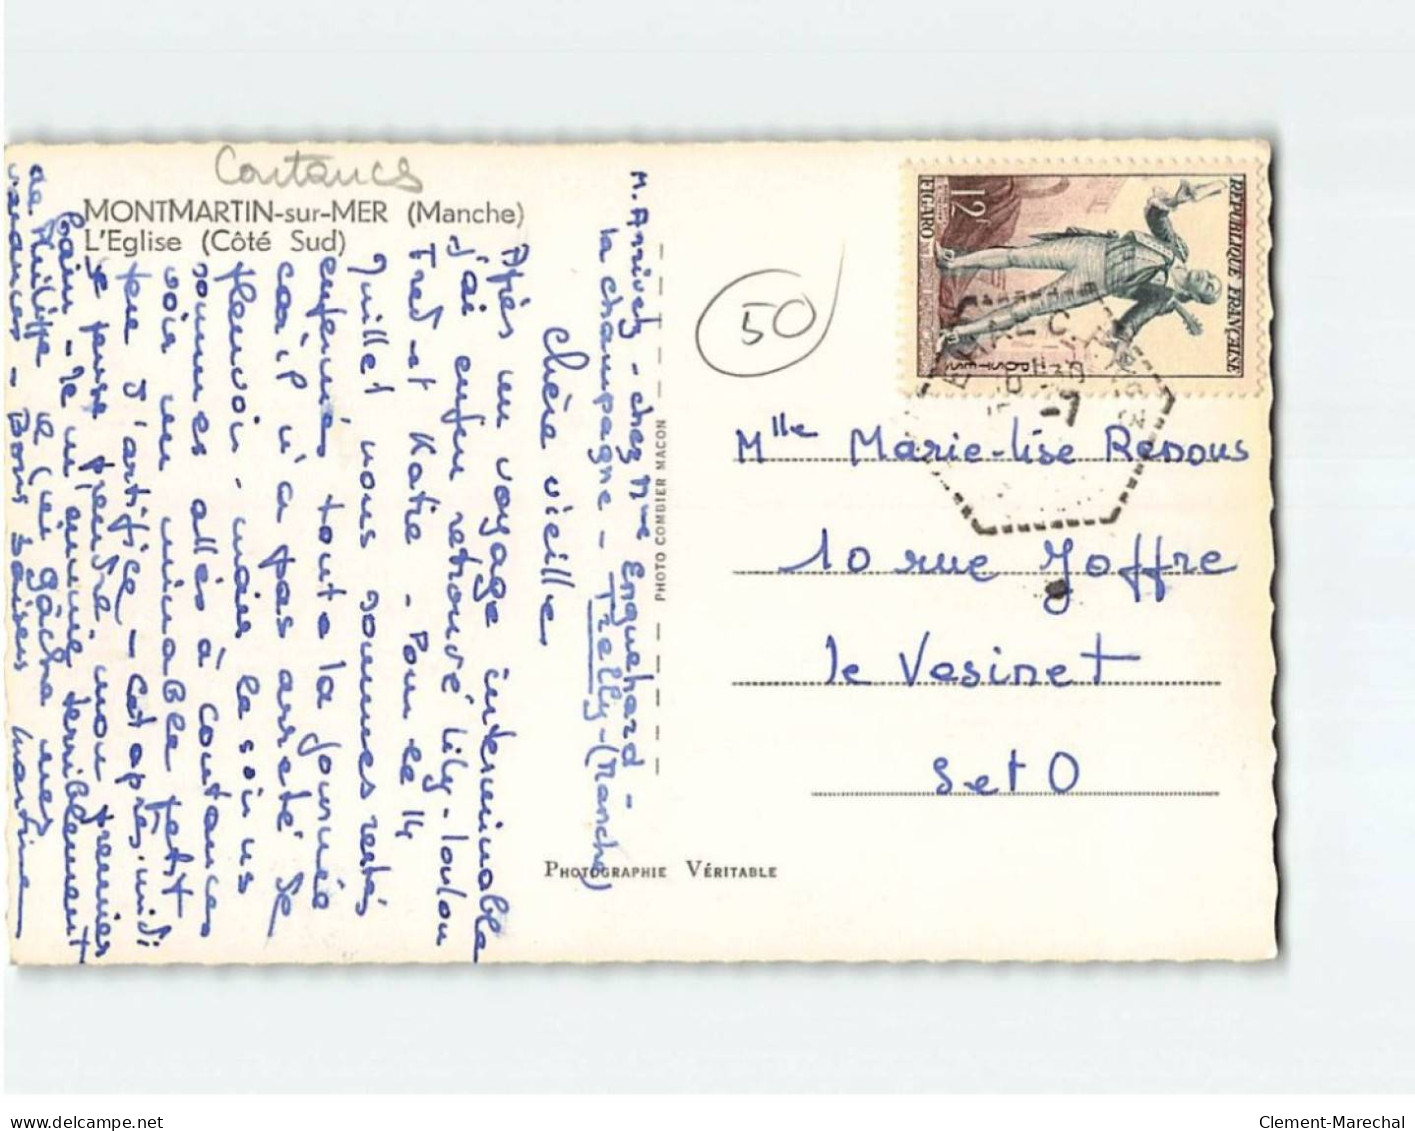 Coutances
MONTMARTIN-sur-MER (Manche)
L'Eglise (Côté Sud)
M. Arrivetz - chez Mme Enguehard -
la champagne - Trelly - (Manche)
chère vieille
Après un voyage interminable
j'ai enfin retrouvé Lily - loulou
Fred et Katie - Pour le 14
Juillet nous sommes restés
enfermés toute la journée
car ip n'a pas arreté de
pleuvoir - mais le soir us
sommes allés à Coutances
voir un minable petit
feu d'artifice - cet après-midi
je pense prendre mon premier
bain - Je m'amuse terriblement
de Philippe
vacances - Bons baisers Martine
PHOTO COMBIER MACON
PHOTOGRAPHIE VÉRITABLE
50
REPUBLIQUE FRANÇAISE
12F
FIGARO
POSTES
Mlle Marie-Lise Redous
10 rue Joffre
le Vesinet
S et O
www.delcampe.net
Clement-Marechal